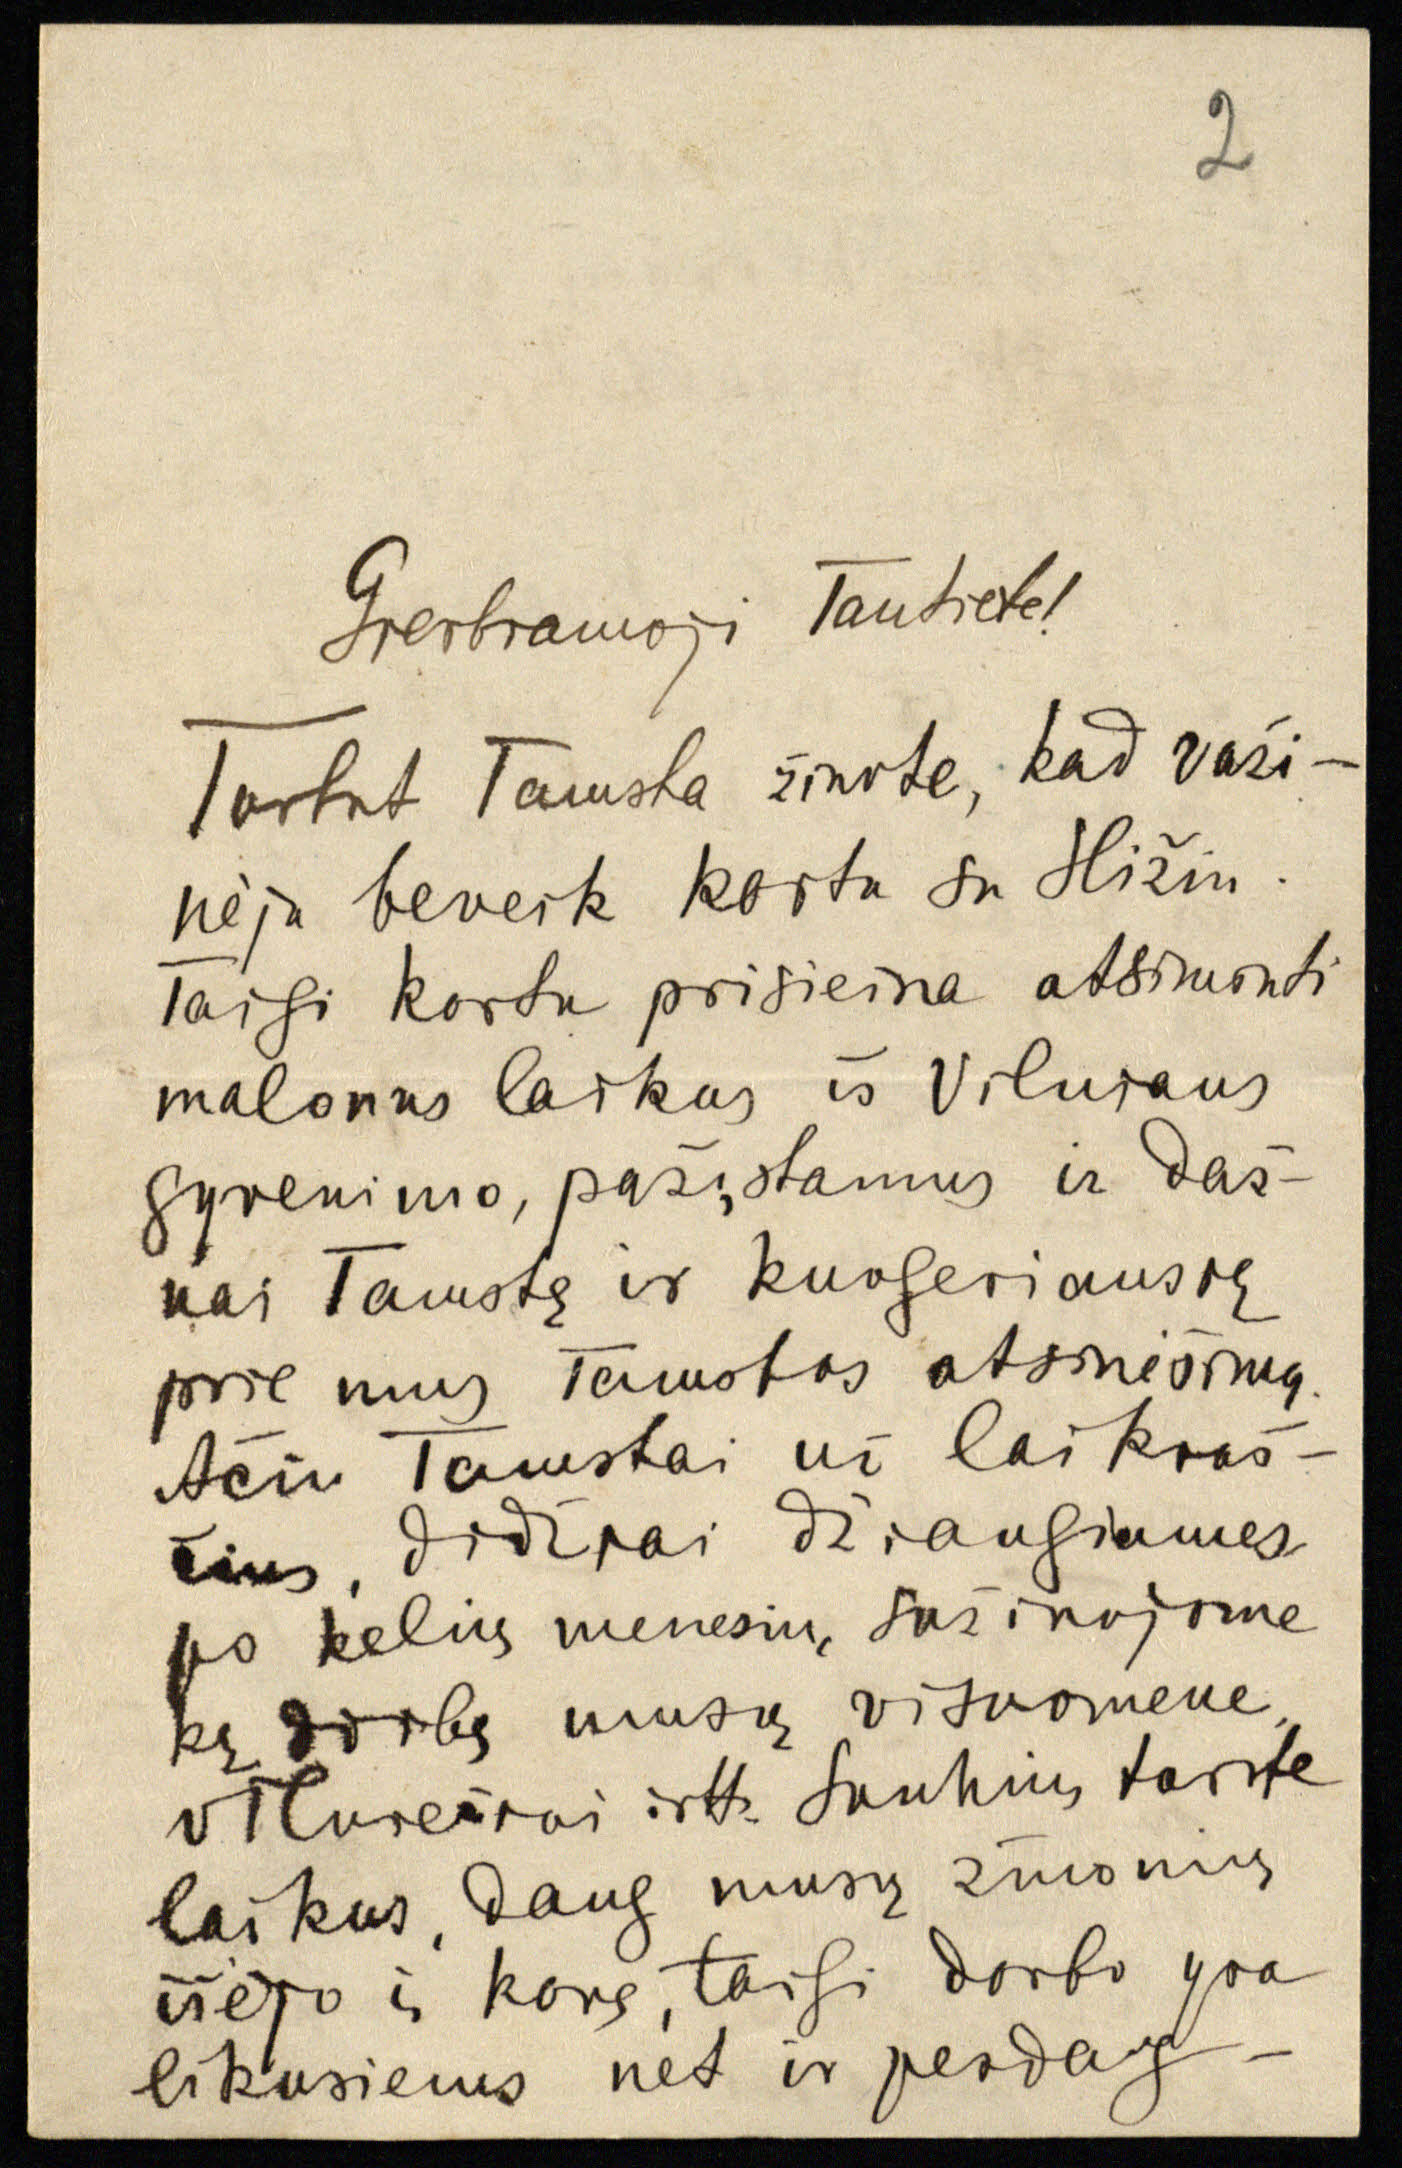 2
Gierbiamoji Tautiete!
Turbut Tamsta žinote, kad važi-
nėju beveik kartu su Hižiu.
Taigi kartu prisieina atsiminti
malonus laikus iš Vilniaus
gyvenimo, pažįstamus ir daž-
nai Tamstą ir kuogeriausią
prie mus Tamstos atsinešimą.
Ačiu Tamstai už laikraš-
čius, didžiai džiaugiames
po kelių menesių, sužinojome
ką dirba musų visuomene,
vilniečiai irtt. Sunkius turite
laikus, daug musų žmonių
išėjo į karą, taigi darbo yra
likusiems net ir perdaug –